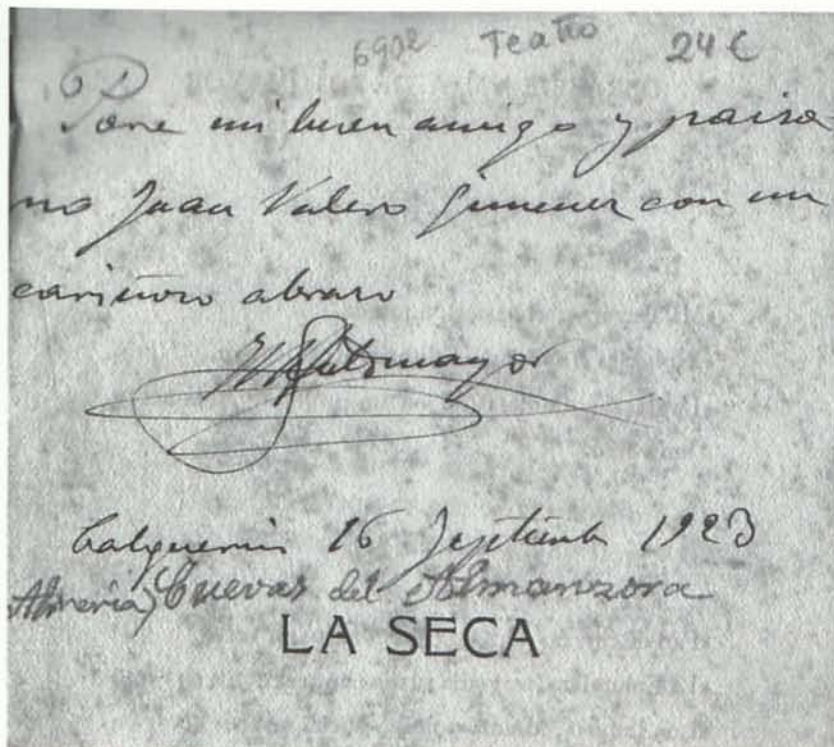 6902 Teatro 24 €
Para mi buen amigo y paisa
no Juan Valero Gimenez con un
cariñoso abrazo
Calguerin 16 Septiembre 1923
Almeria, Cuevas del Almanzora
LA SECA